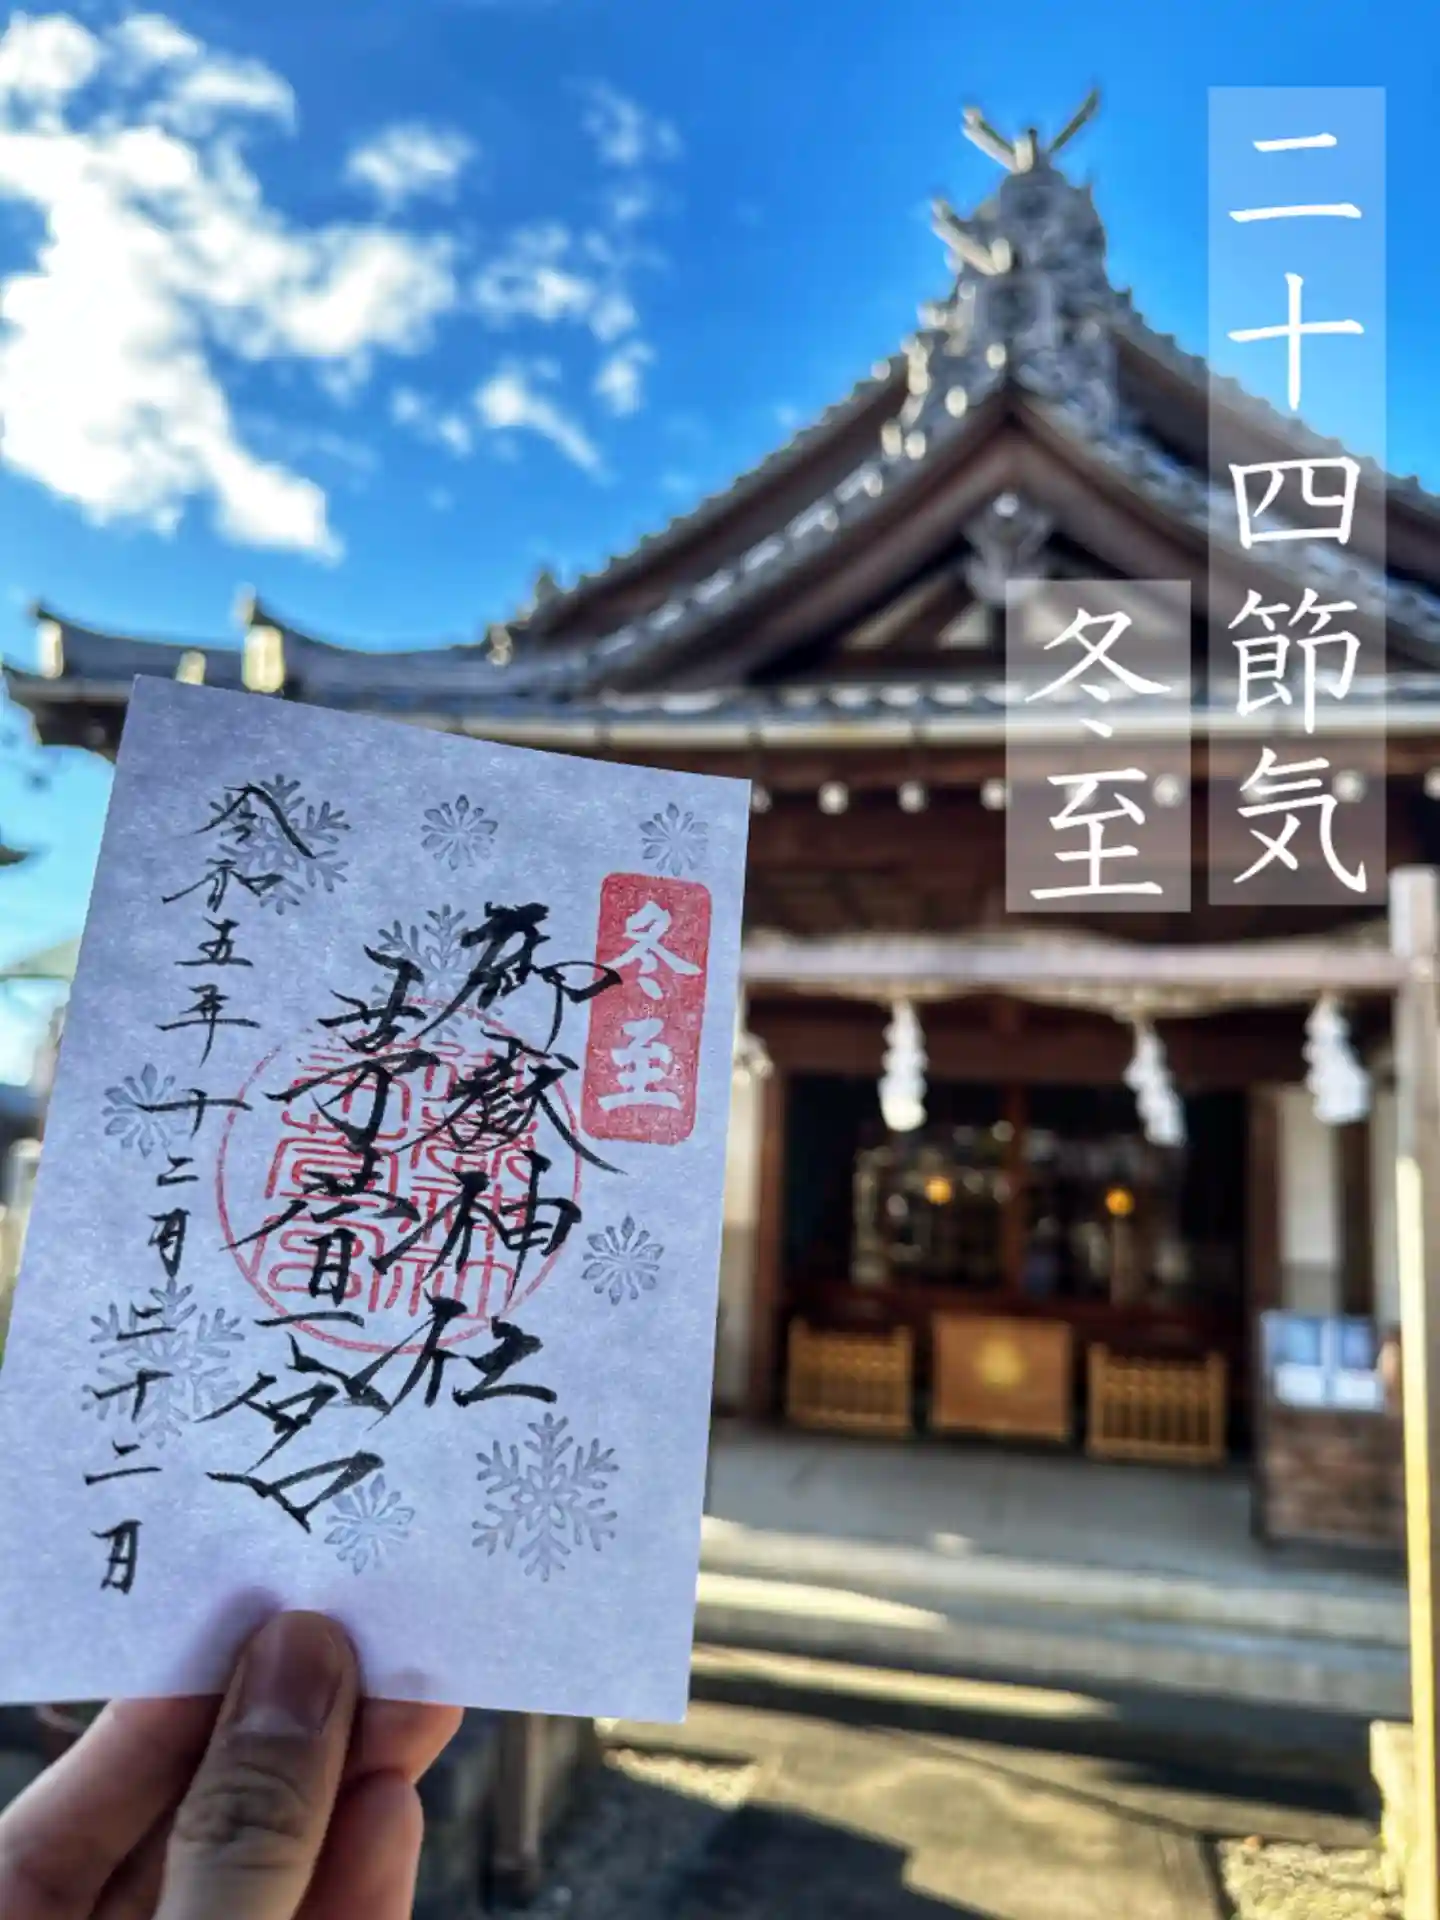 二十四節気
冬至
冬至
御嶽神社
茅萱宮
令和五年十二月二十二日